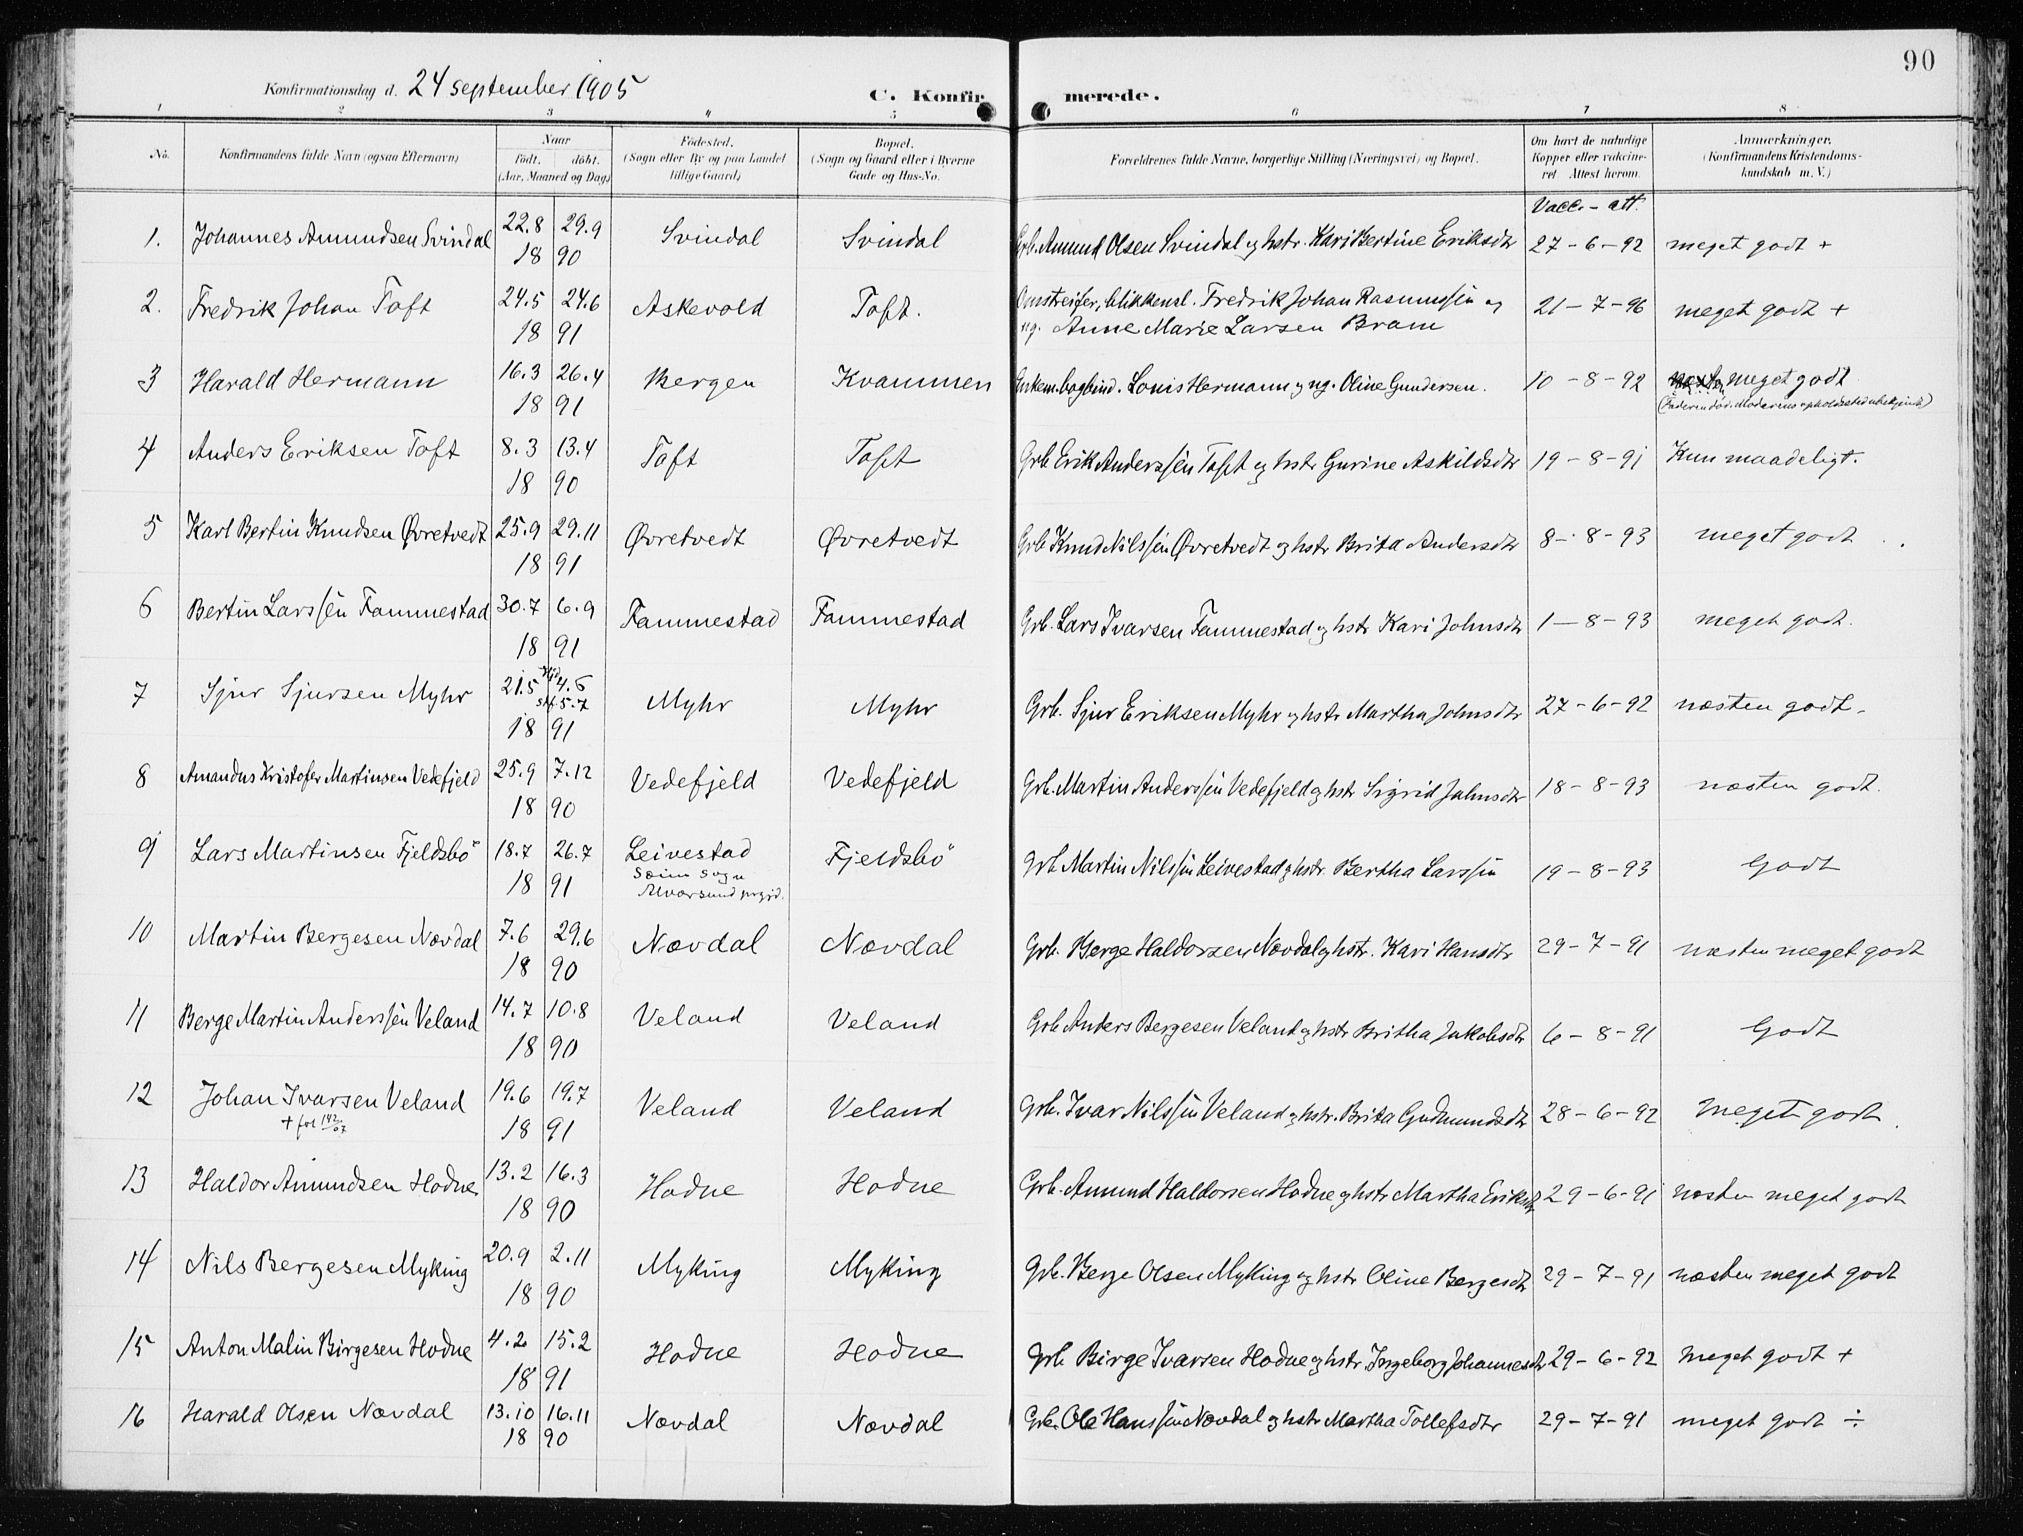 90
Konfirmationsdag d. 24 september 1905
C. Konfirmerede.
1 2 3 4 5 6 7 8
No. Konfirmandens fulde Navn (ogsaa Efternavn) Naar født. døbt. (Aar, Maaned og Dag) Födested. (Sogn eller By og paa Landet tillige Gaard) Bopæl. (Sogn og Gaard eller i Byerne Gade og Hus-No. Forældrenes fulde Navne, borgerlige Stilling (Næringsvei) og Bopæl. Om havt de naturlige Kopper eller vakcineret Attest herom. Anmerkninger. (Konfirmandens Kristendomskundskab m. V.)
Vacc. - att.
1. Johannes Amundsen Svindal 22.8 29.9 1890 Svindal Svindal Grb. Amund Olsen Svindal og hstr. Kari Bertine Eriksdtr 27-6-92 meget godt +
2. Fredrik Johan Toft 24.5 24.6 1891 Askevold Toft. Omstreifer, blikkensl. Fredrik Johan Rasmussen og
ug. Anne Marie Larsen Bram 21-7-96 meget godt +
3 Harald Hermann 16.3 26.4 1891 Bergen Kvammen Enkem. bogbind. Louis Hermann og ug. Oline Gundersen. 10-8-92 meget godt
(Faderen død. Moderens opholdssted ubekjendt)
4 Anders Eriksen Toft 8.3 13.4 1890 Toft Toft Grb Erik Anderssen Toft og hstr Gurine Askildsdtr 19-8-91 Kun maadeligt.
5 Karl Bertin Knudsen Øvretvedt 25.9 29.11 1891 Øvretvedt Øvretvedt Grb Knud Nilssen Øvretvedt og hstr Brita Andersdtr 8-8-93 meget godt
6 Bertin Larssen Fammestad 30.7 6.9 1891 Fammestad Fammestad Grb. Lars Ivarsen Fammestad og hstr Kari Johnsdtr 1-8-93 meget godt.
7 Sjur Sjursen Myhr 21.5 Hjd 4.6 st. 5.7 1891 Myhr Myhr Grb. Sjur Eriksen Myhr og hstr Martha Johnsdtr 27-6-92 næsten godt-
8 Amandus Kristofer Martinsen Vedefjeld 25.9 7.12 1890 Vedefjeld Vedefjeld Grb. Martin Anderssen Vedefjeld og hstr Sigrid Johnsdtr 18-8-93 næsten godt.
9 Lars Martinsen Fjeldsbö 18.7 26.7 1891 Leivestad Sæim Sogn Alversund prgjd. Fjeldsbö Grb Martin Nilssen Leivestad og hstr. Bertha Larssen 19-8-93 Godt
10 Martin Bergesen Nævdal 7.6 29.6 1890 Nævdal Nævdal Grb. Berge Haldorsen Nævdal og hstr. Kari Hansdtr 29-7-91 næsten meget godt
11 Berge Martin Anderssen Veland 14.7 10.8 1890 Veland Veland Grb Anders Bergesen Veland og hstr Britha Jakobsdtr 6-8-91 Godt
12 Johan Ivarsen Veland 19.6 19.7 1891 Veland Veland Grb. Ivar Nilssen Veland og hstr. Brita Gudmundsdtr 28-6-92 Meget godt.
+ fol 142/07
13 Haldor Amundsen Hodne 13.2 16.3 1890 Hodne Hodne Grb. Amund Haldorsen Hodne og hstr Martha Eriksdtr 29-6-91 næsten meget godt
14 Nils Bergesen Myking 20.9 2.11 1890 Myking Myking Grb. Berge Olsen Myking og hstr Oline Bergesdtr 29-7-91 næsten meget godt
15 Anton Malin Birgesen Hodne 4.2 15.2 1891 Hodne Hodne Grb Birge Ivarsen Hodne og hstr Ingeborg Johannesdtr 29-6-92 Meget godt +
16 Harald Olsen Nævdal 13.10 16.11 1890 Nævdal Nævdal Grb. Ole Hanssen Nævdal og hstr Martha Tollefsdtr 29-7-91 meget godt ÷